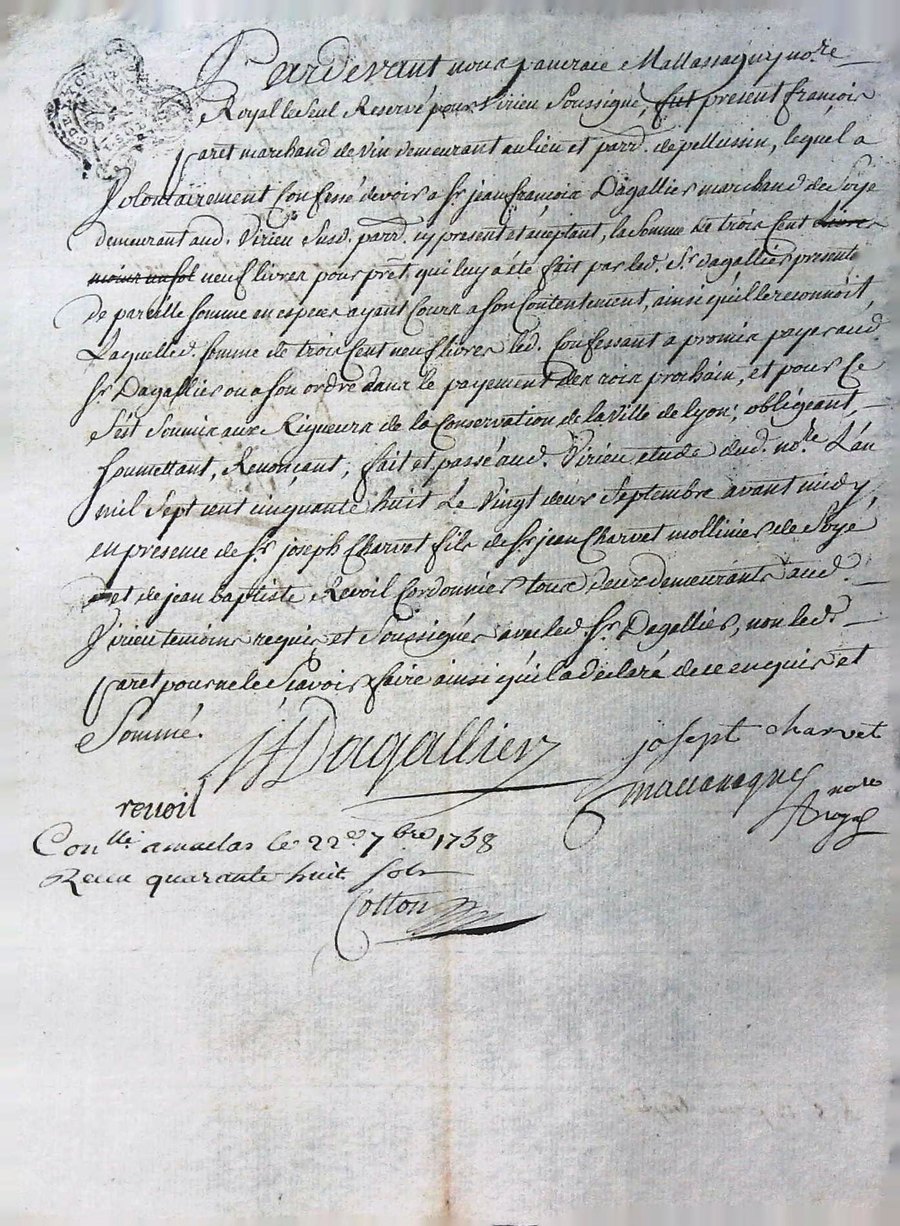 Pardevant nous pancrace Mallassagny no.re
Royal le seul Reservé pour Virieu Soussigné, fut present françois
paret marchand de vin demeurant au lieu et parr.e de pellussin, lequel a
Volontairement Confessé devoir a Sr jean françois Dagallier marchand de Soye
demeurant aud. Virieu susd. parr.e icy present et aceptant, la Somme de trois Cent livres
moins un sol neuf livres pour prêt, qui luy a été fait par led. Sr dagallier present
de pareille Somme en especes ayant Cours a Son Contentement, ainsi qu'il le reconnoit,
Laquelle d. Somme de trois Cent neuf livres led. Confessant a promis payer aud
Sr Dagallier ou a son ordre dans le payement des rois prochain, et pour Ce
s'est Soumis aux Rigueurs de la Conservation de la Ville de lyon; obligeant,
soumettant, Renonçant, fait et passé aud. Virieu etude dud. no.re L'an
mil Sept cent cinquante huit Le Vingt deux Septembre avant midy,
en presence de Sr joseph Charvet fils de Sr jean Charvet mollinier de Soye
et de jean baptiste Revoil Cordonnier tous deux demeurants aud.
Virieu temoins requis et Soussignés avec led. Sr Dagallier, non led.
paret pour ne le Scavoir faire ainsi qu'il a déclaré de ce enquis et
Sommé.
jf Dagallier joseph charvet
revoil no.re
royal
Con.llé a maclas le 22.e 7bre 1758
Receu quarante huit sols
Cotton